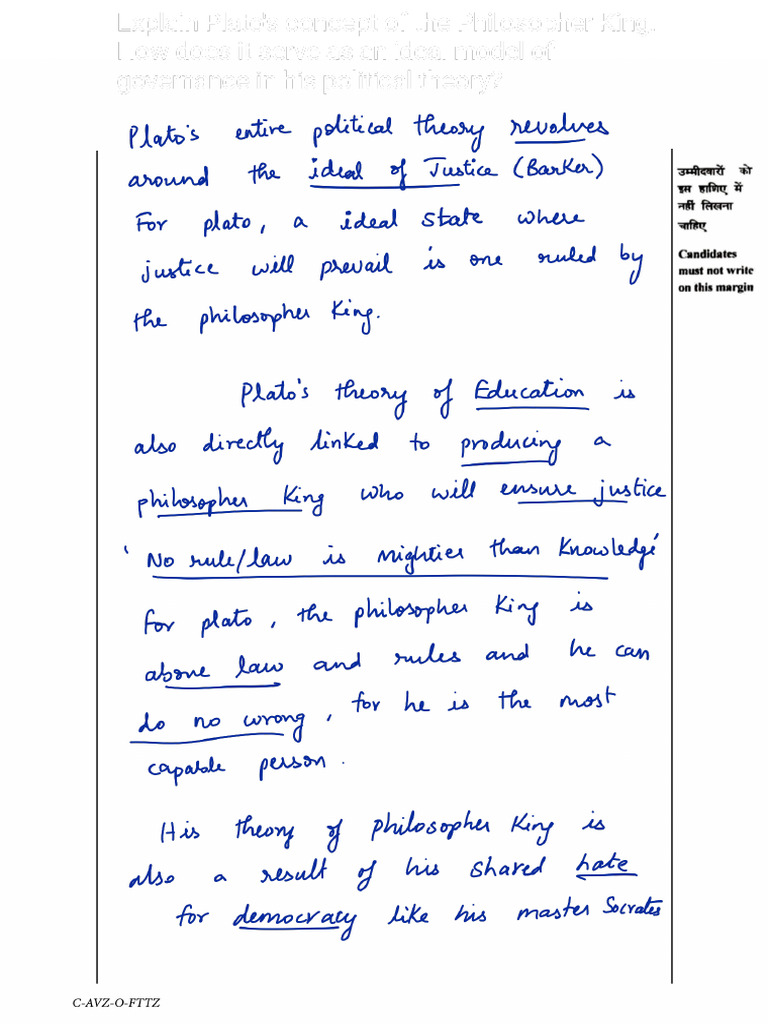 Explain Plato's concept of the Philosopher King.
How does it serve as an ideal model of
governance in his political theory?
Plato's entire political theory revolves
around the ideal of Justice (Barker)
For plato, a ideal state where
justice will prevail is one ruled by
the philosopher King.
Plato's theory of Education is
also directly linked to producing a
philosopher King who will ensure justice
'No rule/law is mightier than Knowledge'
For plato, the philosopher King is
above law and rules and he can
do no wrong, for he is the most
capable person.
His theory of philosopher King is
also a result of his shared hate
for democracy like his master Socrates
उम्मीदवारों को
इस हाशिए में
नहीं लिखना
चाहिए
Candidates
must not write
on this margin
C-AVZ-O-FTTZ